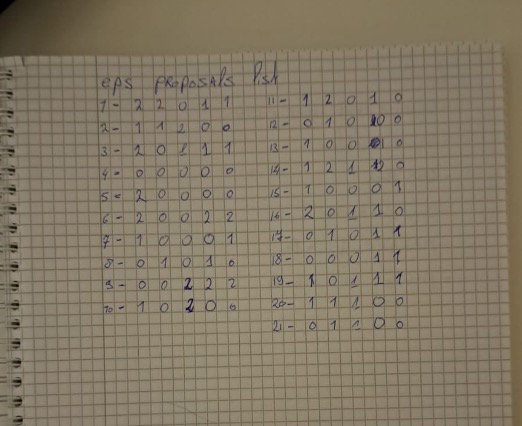 EPS PROPOSALS list
1 - 2 2 0 1 1
2 - 1 1 2 0 0
3 - 2 0 1 1 1
4 - 0 0 0 0 0
5 - 2 0 0 0 0
6 - 2 0 0 2 2
7 - 1 0 0 0 1
8 - 0 1 0 1 0
9 - 0 0 2 2 2
10 - 1 0 2 0 0
11 - 1 2 0 1 0
12 - 0 1 0 0
13 - 1 0 0 0
14 - 1 2 1 0
15 - 1 0 0 0 1
16 - 2 0 1 1 0
17 - 0 1 0 1 1
18 - 0 0 0 1 1
19 - 1 0 1 1 1
20 - 1 1 1 0 0
21 - 0 1 1 0 0